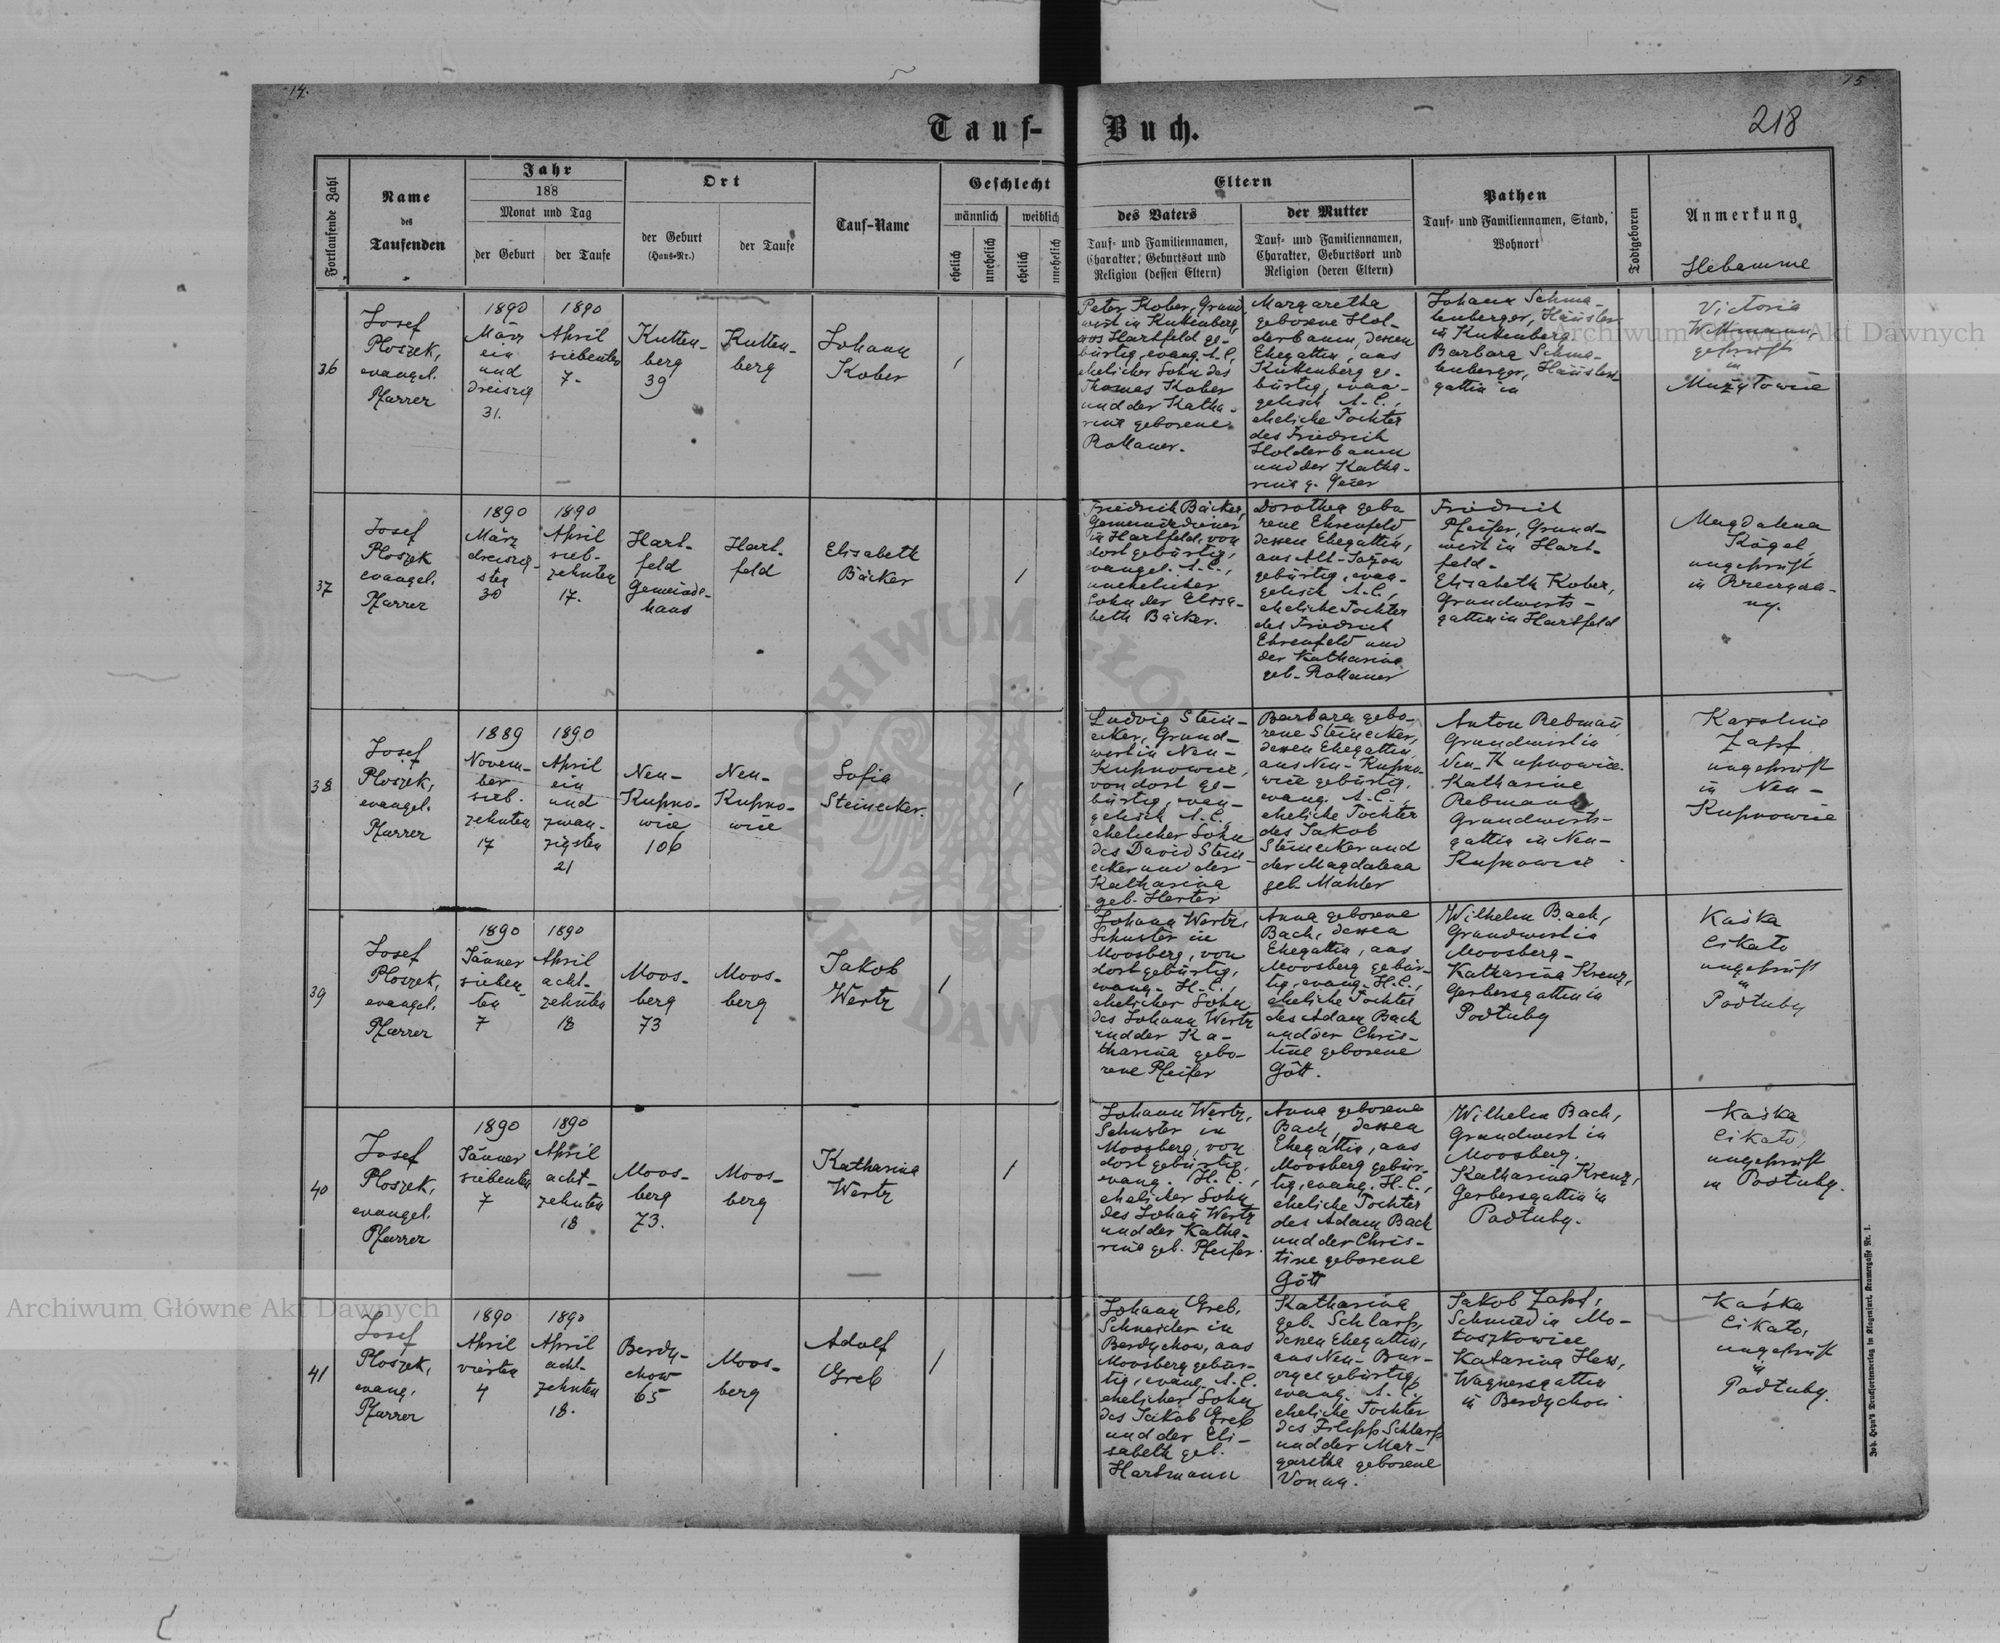 14.
15
Tauf-Buch.
218
Fortlaufende Zahl
Name
des
Taufenden
Jahr
188
Monat und Tag
der Geburt
der Taufe
Ort
der Geburt
(Haus-Nr.)
der Taufe
Tauf-Name
Geschlecht
männlich
weiblich
ehelich
unehelich
ehelich
unehelich
Eltern
des Vaters
Tauf- und Familiennamen,
Charakter, Geburtsort und
Religion (dessen Eltern)
der Mutter
Tauf- und Familiennamen,
Charakter, Geburtsort und
Religion (deren Eltern)
Pathen
Tauf- und Familiennamen, Stand,
Wohnort
Todtgeboren
Anmerkung
Hebamme
36
Josef
Ploszek,
evangel.
Pfarrer
1890
März
ein
und
dreiszig
31.
1890
April
siebenten
7.
Kutten-
berg
39
Kutten-
berg
Johann
Kober
Peter Kober, Grund
wirt in Kuttenberg,
aus Hartfeld ge-
bürtig, evang. A.C.,
ehelicher Sohn des
Thomas Kober
und der Katha-
rina geborene
Rollauer.
Margaretha
geborene Hol-
derbaum, dessen
Ehegattin, aus
Kuttenberg ge-
bürtig, evan-
gelisch A.C.,
eheliche Tochter
des Friedrich
Holderbaum
und der Katha-
rina g. Geier
Johann Schma-
lenberger, Häusler
in Kuttenberg
Barbara Schma-
lenberger, Häuslers-
gattin in
Victoria
Wittmann,
geprüft
in
Mużyłowice
37
Josef
Ploszek
evangel.
Pfarrer
1890
März
dreiszig-
sten
30
1890
April
sieb-
zehnten
17.
Hart-
feld
Gemeinde-
haus
Hart-
feld
Elisabeth
Bäcker
Friedrich Bäcker,
Gemeindediener
in Hartfeld, von
dort gebürtig,
evangel. A.C.,
unehelicher
Sohn der Elisa-
beth Bäcker.
Dorothea gebo
rene Ehrenfeld
dessen Ehegattin,
aus Alt-Jażow
gebürtig, evan-
gelisch A.C.,
eheliche Tochter
des Friedrich
Ehrenfeld und
der Katharina
geb. Rollauer
Friedrich
Pfeifer, Grund-
wirt in Hart-
feld.
Elisabeth Kober,
Grundwirts-
gattin in Hartfeld
Magdalena
Kögel,
ungeprüft
in
38
Josef
Ploszek,
evangel.
Pfarrer
1889
Novem-
ber
sieb-
zehnten
17
1890
April
ein
und
zwan-
zigsten
21
Neu-
Kupno-
wice
106
Neu-
Kupno-
wice
Sofia
Steinecker.
Ludwig Stein-
ecker, Grund-
wirt in Neu-
Kupnowice,
von dort ge-
bürtig, evan-
gelisch A.C.,
ehelicher Sohn
des David Stein-
ecker und der
Katharina
geb. Herter
Barbara gebo-
rene Steinecker,
dessen Ehegattin,
aus Neu-Kupno-
wice gebürtig,
evang. A.C.,
eheliche Tochter
des Jakob
Steinecker und
der Magdalena
geb. Mahler
Anton Rebman
Grundwirt in
Neu-Kupnowice.
Katharina
Rebmann
Grundwirts-
gattin in Neu-
Kupnowice
Karoline
Zapf
ungeprüft
in Neu-
Kupnowice
39
Josef
Ploszek,
evangel.
Pfarrer
1890
Jänner
sieben-
ten
7
1890
April
acht-
zehnten
18
Moos-
berg
73
Moos-
berg
Jakob
Wertz
Johann Wertz,
Schuster in
Moosberg, von
dort gebürtig,
evang. H.C.,
ehelicher Sohn
des Johann Wertz
und der Ka-
tharina gebo-
rene Pfeifer
Anna geborene
Bach, dessen
Ehegattin, aus
Moosberg gebür-
tig, evang. H.C.,
eheliche Tochter
des Adam Bach
und der Chris-
tine geborene
Gött.
Wilhelm Bach,
Grundwirt in
Moosberg-
Katharina Kreuz,
Gerbersgattin in
Podłuby
Kaśka
Cikało
ungeprüft
in
Podłuby
40
Josef
Ploszek,
evangel.
Pfarrer
1890
Jänner
siebenten
7
1890
April
acht-
zehnten
18
Moos-
berg
73.
Moos-
berg
Katharina
Wertz
Johann Wertz,
Schuster in
Moosberg, von
dort gebürtig,
evang. H.C.,
ehelicher Sohn
des Johan Wertz
und der Katha-
rina geb. Pfeifer.
Anna geborene
Bach, dessen
Ehegattin, aus
Moosberg gebür-
tig, evang. H.C.,
eheliche Tochter
des Adam Bach
und der Chris-
tine geborene
Gött
Wilhelm Bach,
Grundwirt in
Moosberg.
Katharina Kreuz,
Gerbersgattin in
Podłuby.
Kaśka
Cikało,
ungeprüft
in Podłuby.
41
Josef
Ploszek,
evang.
Pfarrer
1890
April
vierten
4
1890
April
acht-
zehnten
18.
Berdy-
chow
65
Moos-
berg
Adolf
Greb
Johann Greb,
Schneider in
Berdychow, aus
Moosberg gebür-
tig, evang. A.C.
ehelicher Sohn
des Jakob Greb
und der Eli-
sabeth geb.
Hartmann
Katharina
geb. Schlarp,
dessen Ehegattin,
aus Neu-
gebürtig,
evang. A.C.
eheliche Tochter
des Filipp Schlarp
und der Mar-
garetha geborene
Vonau.
Jakob Zapf,
Schmied in Mo-
łoszkowice
Katarina Hess,
Wagnersgattin
in Berdychow
Kaśka
Cikało,
ungeprüft
in
Podłuby.
Joh. Heyn's Drucksortenverlag in Klagenfurt, Kramergasse Nr. 1.
Archiwum Główne Akt Dawnych
Archiwum Główne Akt Dawnych
ARCHIWUM GŁÓWNE AKT DAWNYCH